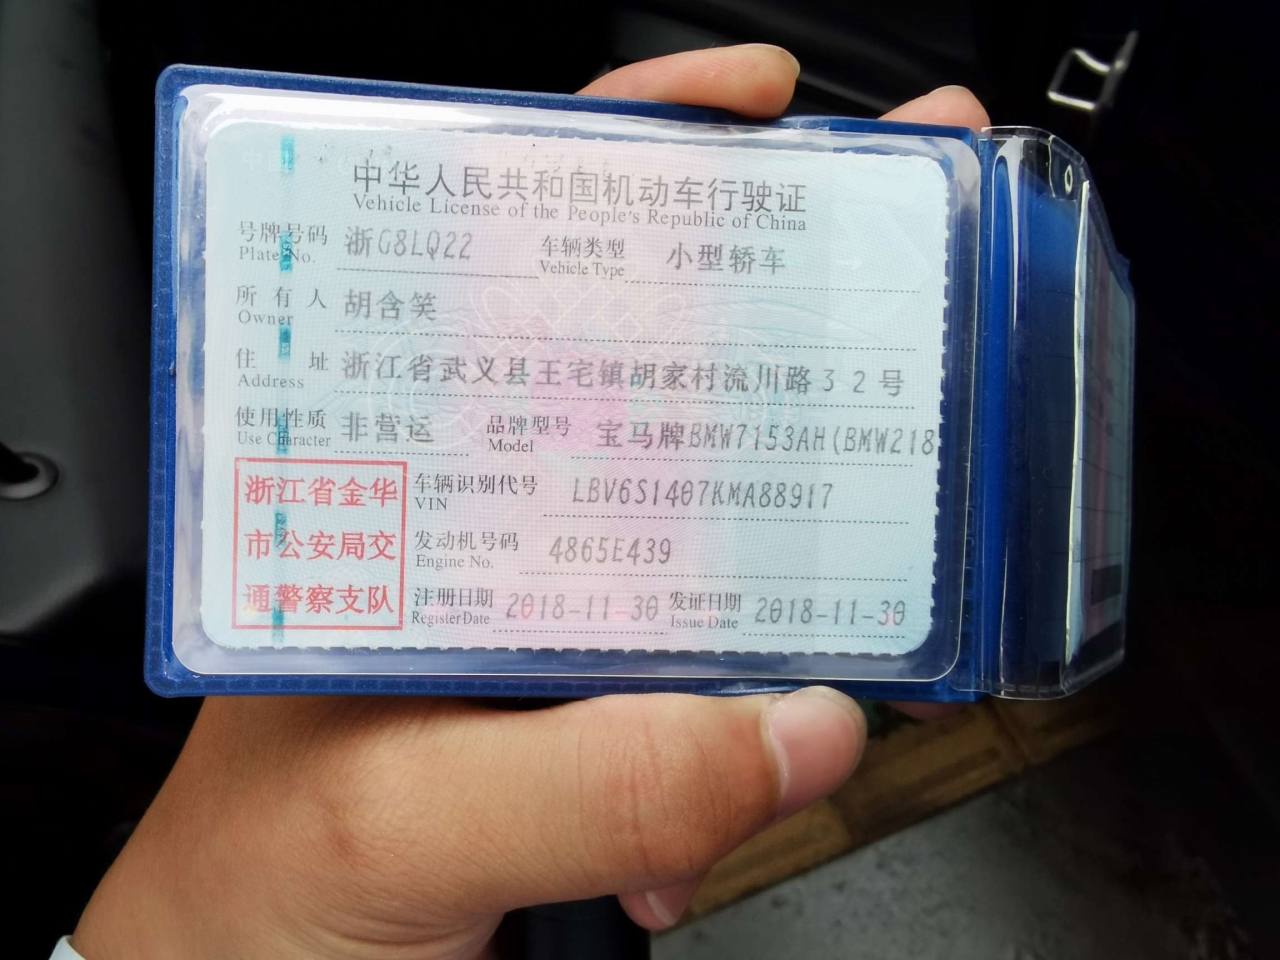 中华人民共和国机动车行驶证
Vehicle License of the People's Republic of China
号牌号码 浙G8LQ22 车辆类型 小型轿车
Plate No. Vehicle Type
所有人 胡含笑
Owner
住址 浙江省武义县王宅镇胡家村流川路32号
Address
使用性质 非营运 品牌型号 宝马牌BMW7153AH(BMW218
Use Character Model
浙江省金华
市公安局交
通警察支队
车辆识别代号 LBV6S1407KMA88917
VIN
发动机号码 4865E439
Engine No.
注册日期 2018-11-30 发证日期 2018-11-30
Register Date Issue Date